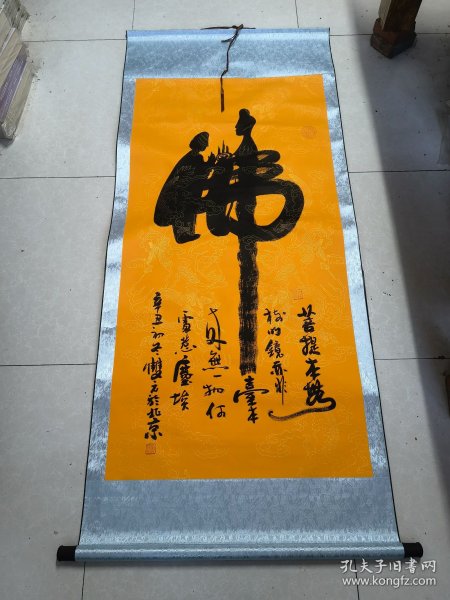 佛
菩提本無
樹明鏡亦非
臺本
來無一物何
處惹塵埃
辛丑初冬雙於北京
孔夫子旧书网
www.kongfz.com